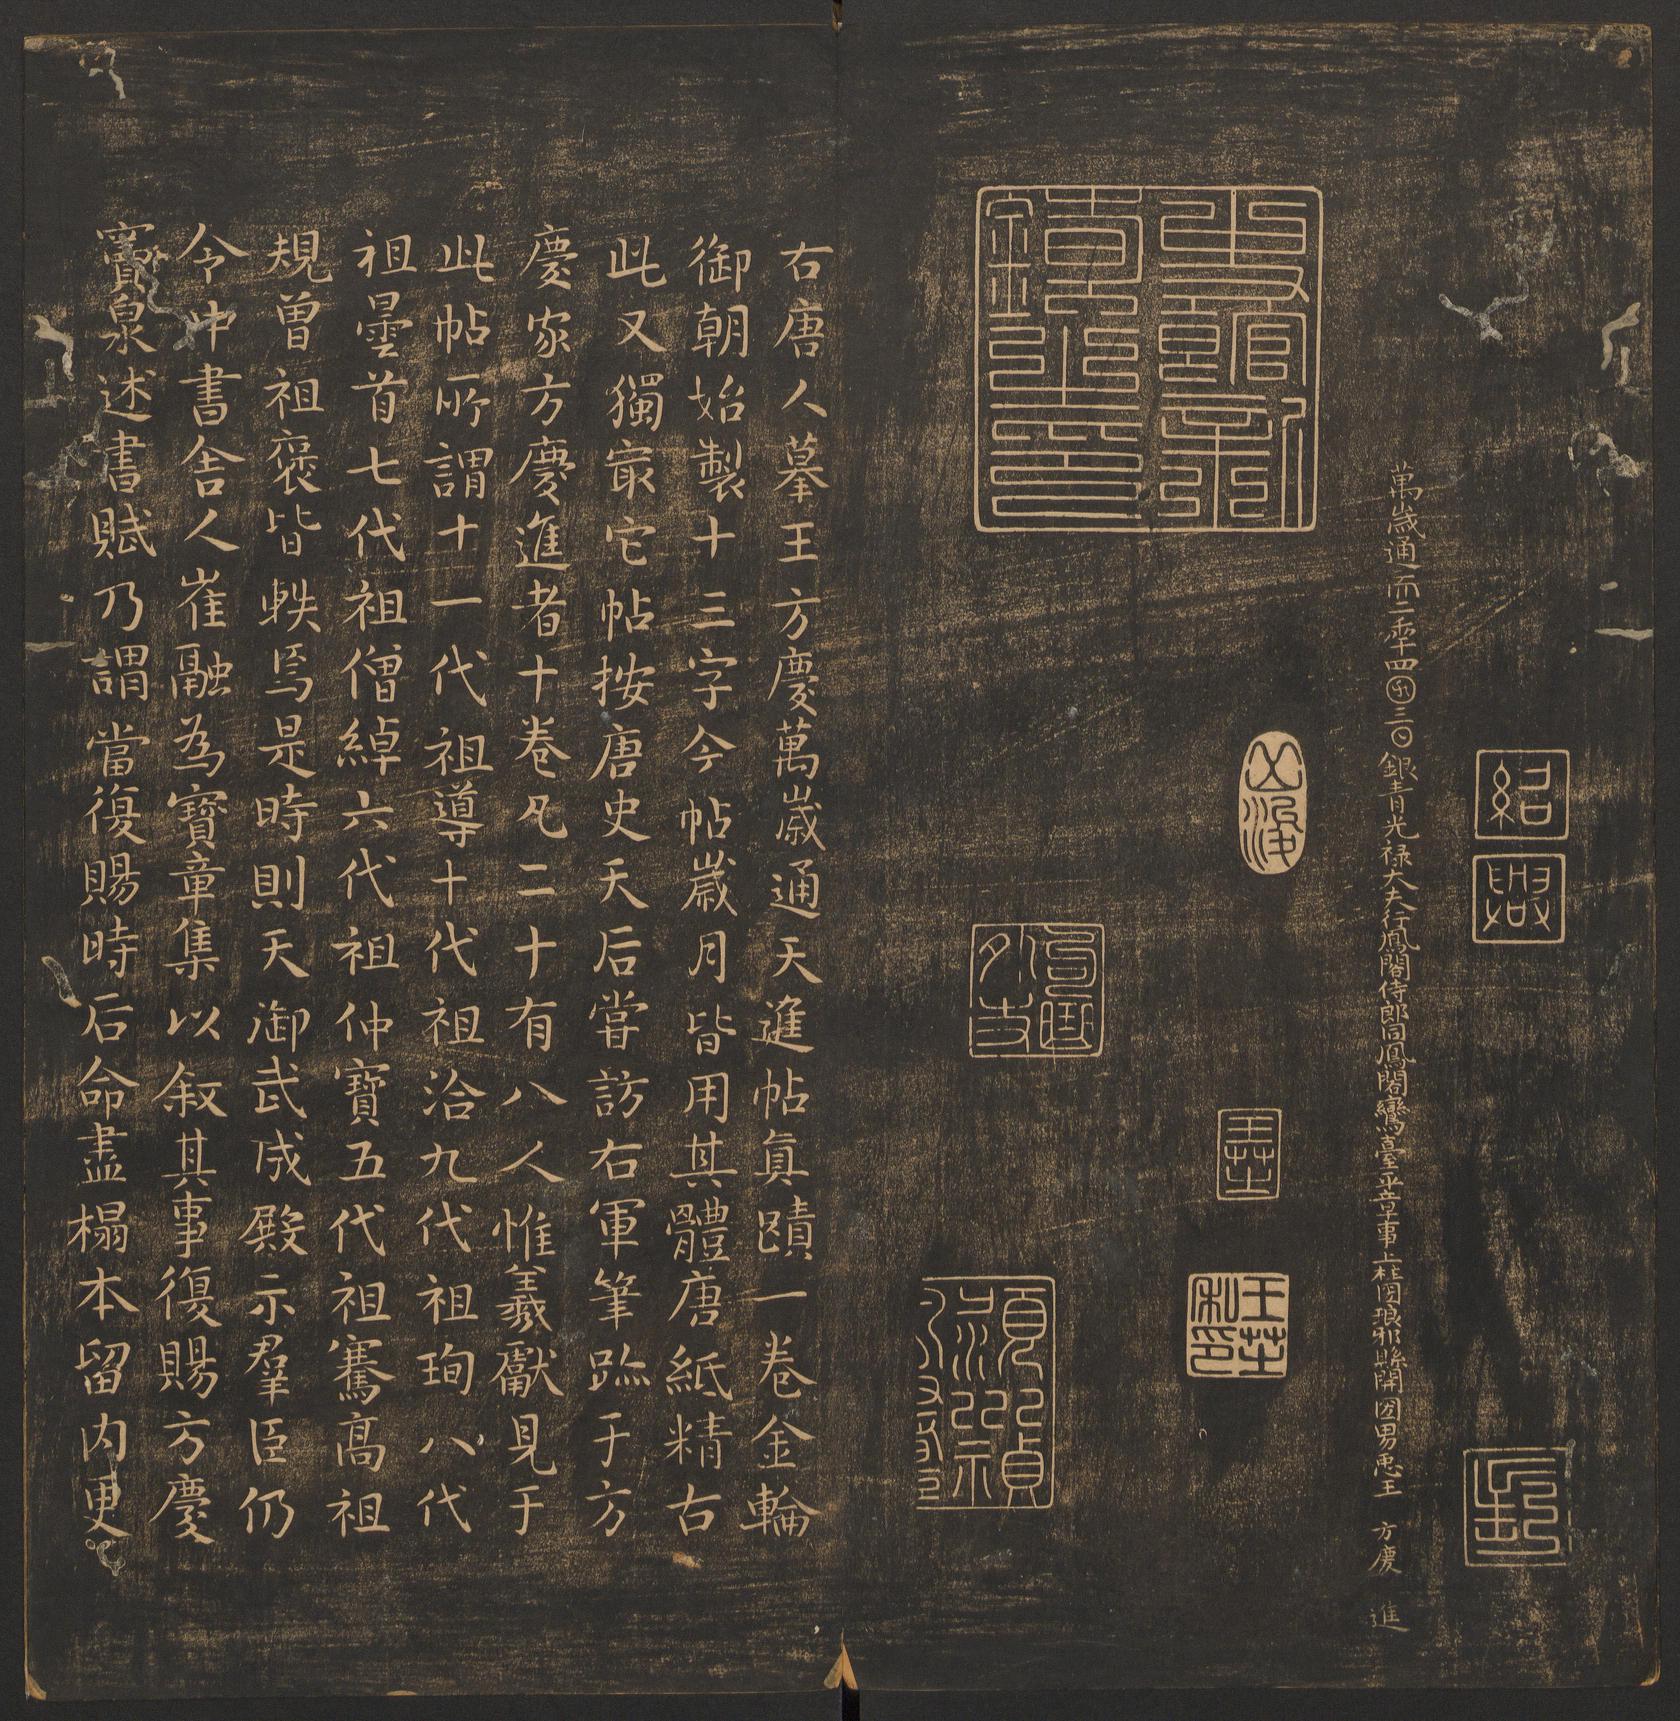 紹興
萬歲通𠀑二𠡦四囝三𡆠銀青光禄大夫行鳳閣侍郎同鳳閣鸞臺平章事上柱圀琅邪縣開圀男𢘑王方慶進
史館新鑄之印
王芝
王芝私印
右唐人摹王方慶萬歲通天進帖真蹟一卷金輪
御朝始製十三字今帖歲月皆用其體唐紙精古
此又獨冣它帖按唐史天后嘗訪右軍筆跡于方
慶家方慶進者十卷凡二十有八人惟羲獻見于
此帖所謂十一代祖導十代祖洽九代祖珣八代
祖曇首七代祖僧綽六代祖仲寶五代祖騫髙祖
規曾祖褒皆軼焉是時則天御武成殿示羣臣仍
令中書舍人崔融為寶章集以叙其事復賜方慶
竇泉述書賦乃謂當復賜時后命盡榻本留内更